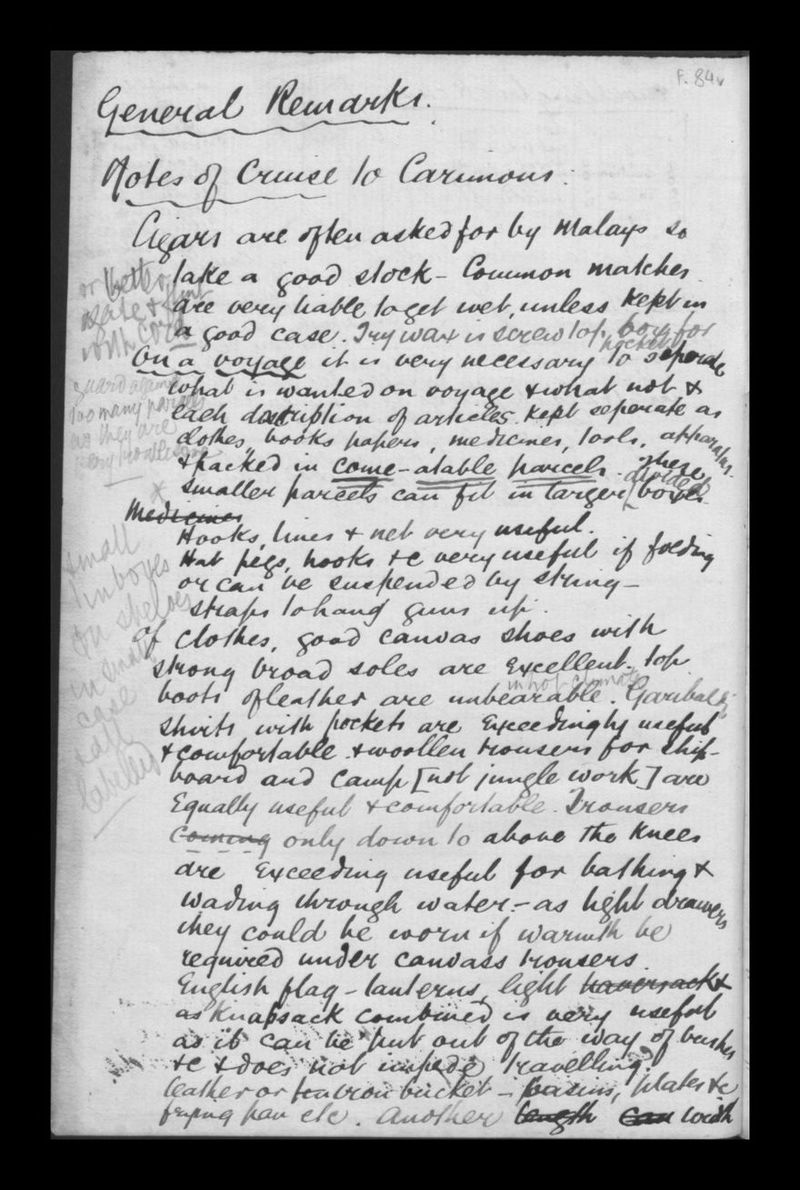 F. 84v
General Remarks.
Notes of Cruise to Carimons.
Cigars are often asked for by Malays so
take a good stock - Common matches
are very liable to get wet, unless kept in
a good case. Try wax in screw top box for
pocket
or better
agate & flint
with cord
On a voyage it is very necessary to seperate
what is wanted on voyage & what not &
each description of articles kept seperate as
clothes, books papers, medicines, tools, apparatus.
& packed in come-atable parcels. These
smaller parcels can fit in larger divided boxes.
guard against
too many parcels
as they are
very troublesome
Medicines
Hooks, lines & net very useful.
Hat pegs, hooks &c very useful if folding
or can be suspended by string -
straps to hang guns up.
small
tin boxes
on shelves
in small
case
& all
labelled
Of clothes, good canvas shoes with
strong broad soles are excellent. top
boots of leather are unbearable in hot climate. Garibaldi
shirts with pockets are exceedingly useful
& comfortable & woollen trousers for ship-
board and camp [not jungle work] are
Equally useful & comfortable. Trousers
coming only down to above the knees
are exceeding useful for bathing &
wading through water - as light drawers
they could be worn if warmth be
required under canvass trousers.
English flag - lanterns, light haversack &
as knapsack combined is very useful
as it can be put out of the way of bushes
&c & does not impede travelling.
leather or iron bucket - basins, plates &c
frying pan etc. Another length can with